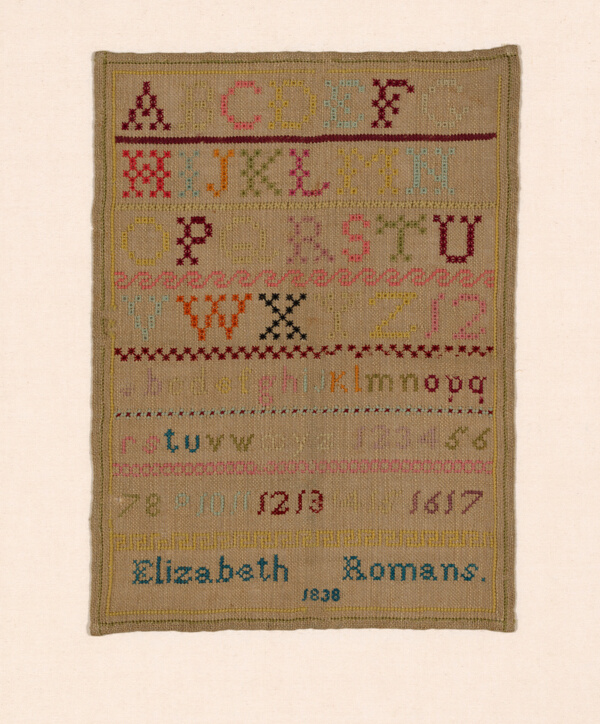 ABCDEFG
HIJKLMN
OPQRSTU
VWXYZ12
abcdefghijklmnopq
rstuvwxyz 123456
78 9 10 11 12 13 14 15 16 17
Elizabeth Romans.
1838